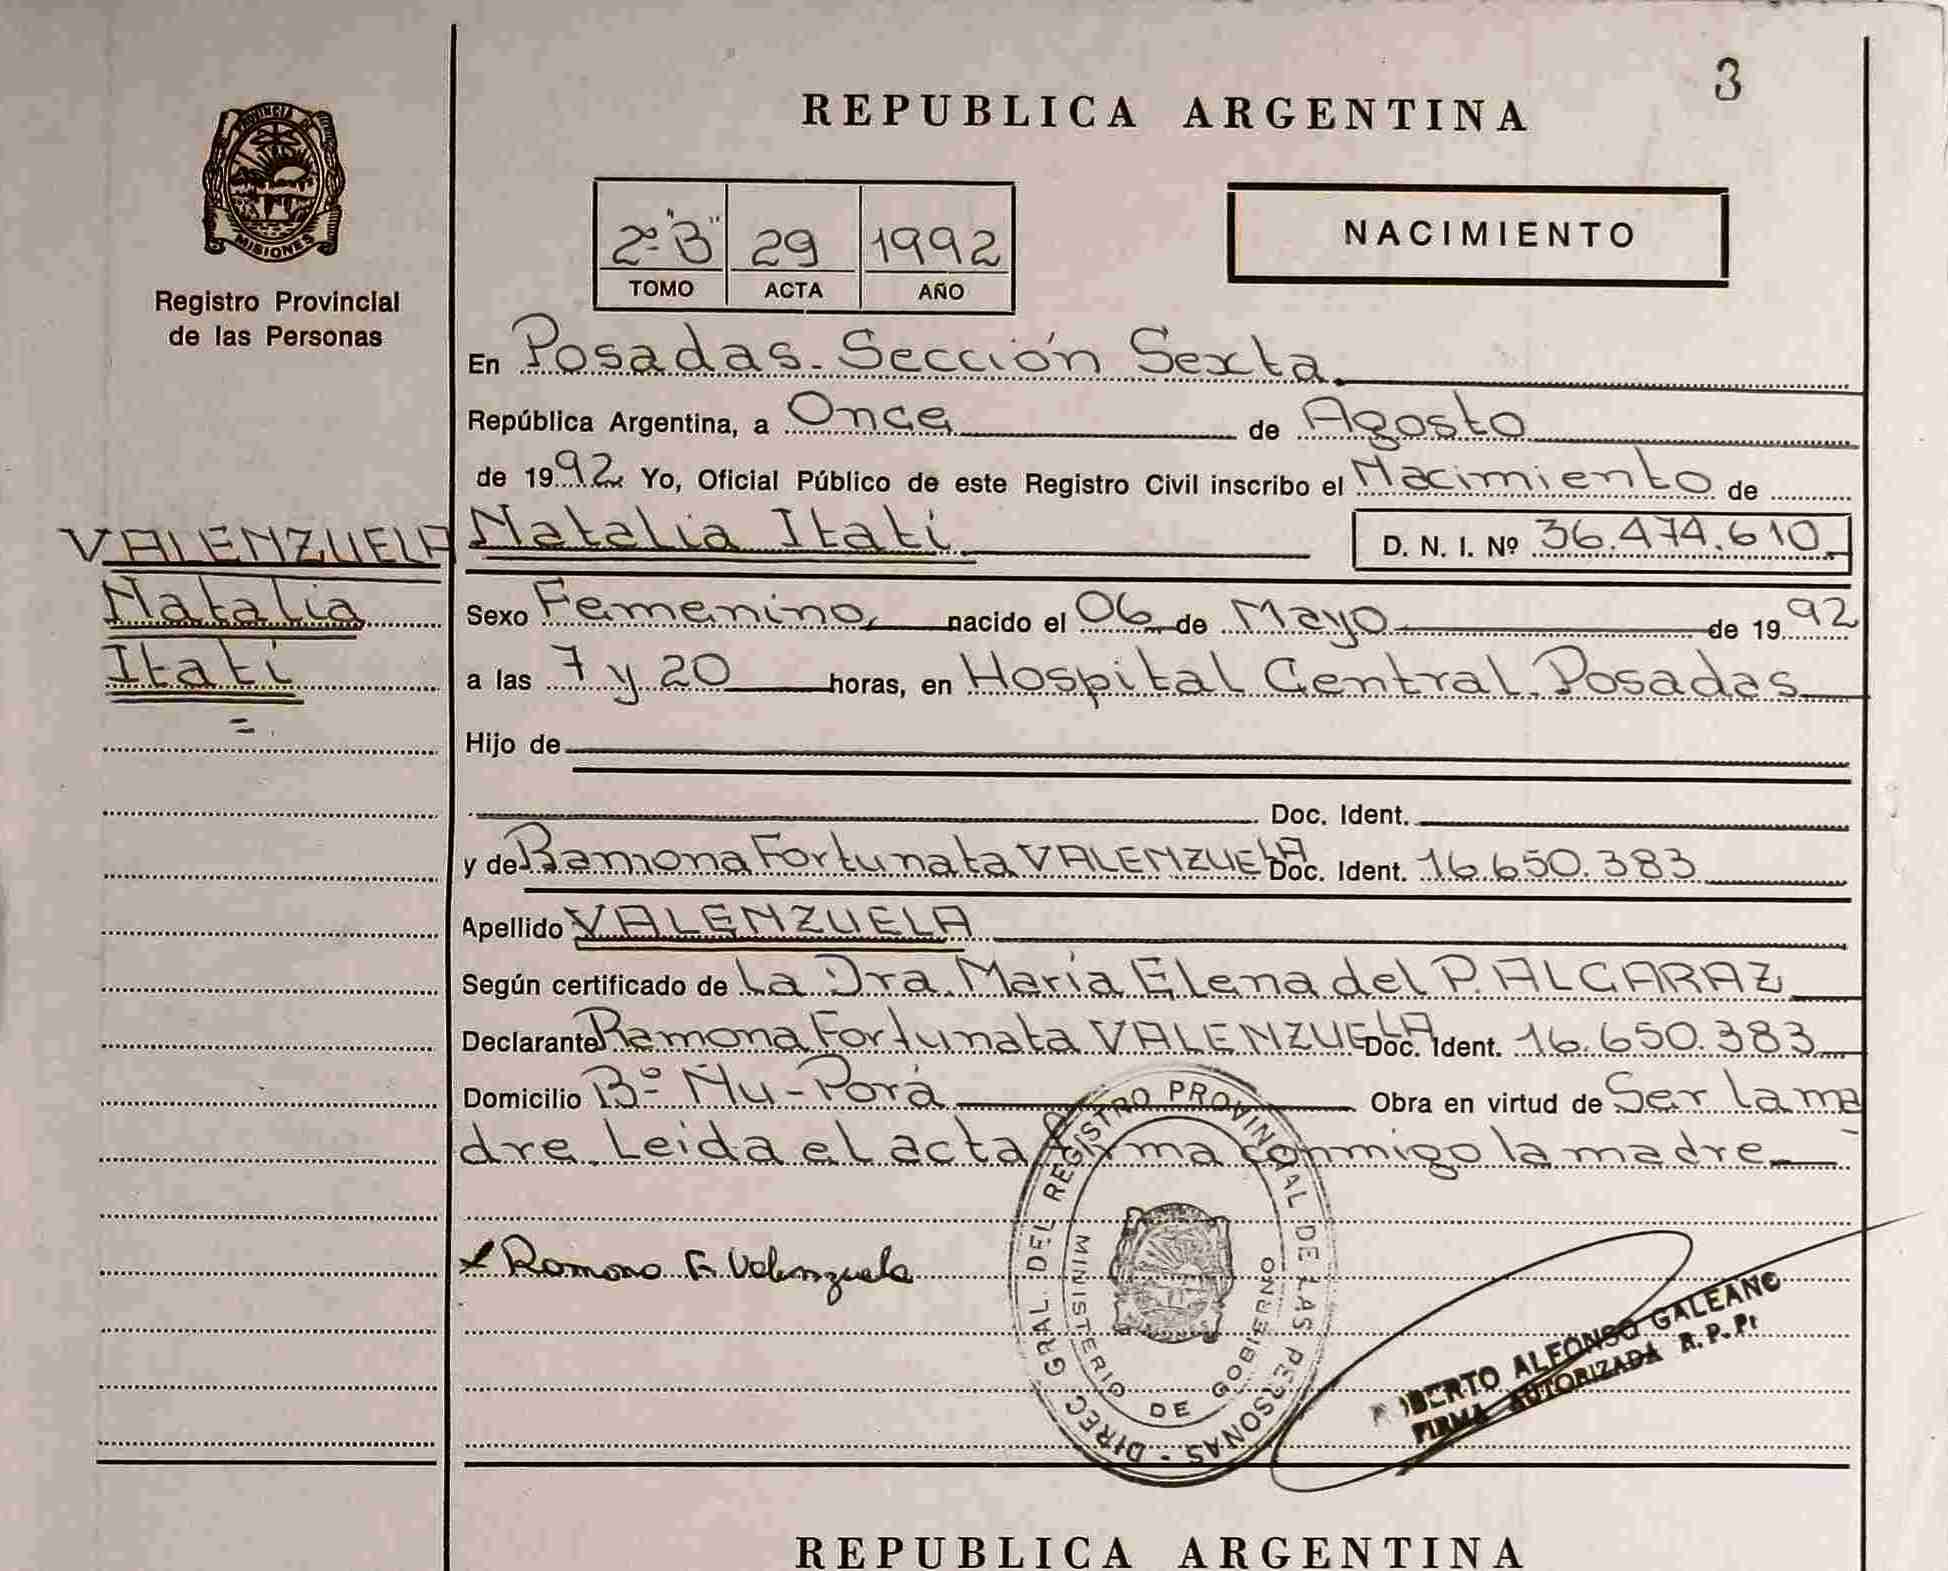 3
REPUBLICA ARGENTINA
PROVINCIA DE
MISIONES
Registro Provincial
de las Personas
2º "B" 29 1992
TOMO ACTA AÑO
NACIMIENTO
En Posadas - Sección Sexta
República Argentina, a Once de Agosto
de 1992 Yo, Oficial Público de este Registro Civil inscribo el Nacimiento de
VALENZUELA
Natalia
Itatí
Natalia Itatí D. N. I. Nº 36.474.610
Sexo Femenino, nacido el 06 de Mayo de 1992
a las 7 y 20 horas, en Hospital Central Posadas
Hijo de
Doc. Ident.
y de Ramona Fortunata VALENZUELA Doc. Ident. 16.650.383
Apellido VALENZUELA
Según certificado de La Dra. María Elena del P. ALCARAZ
Declarante Ramona Fortunata VALENZUELA Doc. Ident. 16.650.383
Domicilio Bº Ñu-Porá Obra en virtud de Ser la ma
dre. Leida el acta firma conmigo la madre
Ramona F. Valenzuela
DIREC. GRAL. DEL REGISTRO PROVINCIAL DE LAS PERSONAS -
MINISTERIO DE GOBIERNO
ROBERTO ALFONSO GALEANO
FIRMA AUTORIZADA R. P. P.
REPUBLICA ARGENTINA